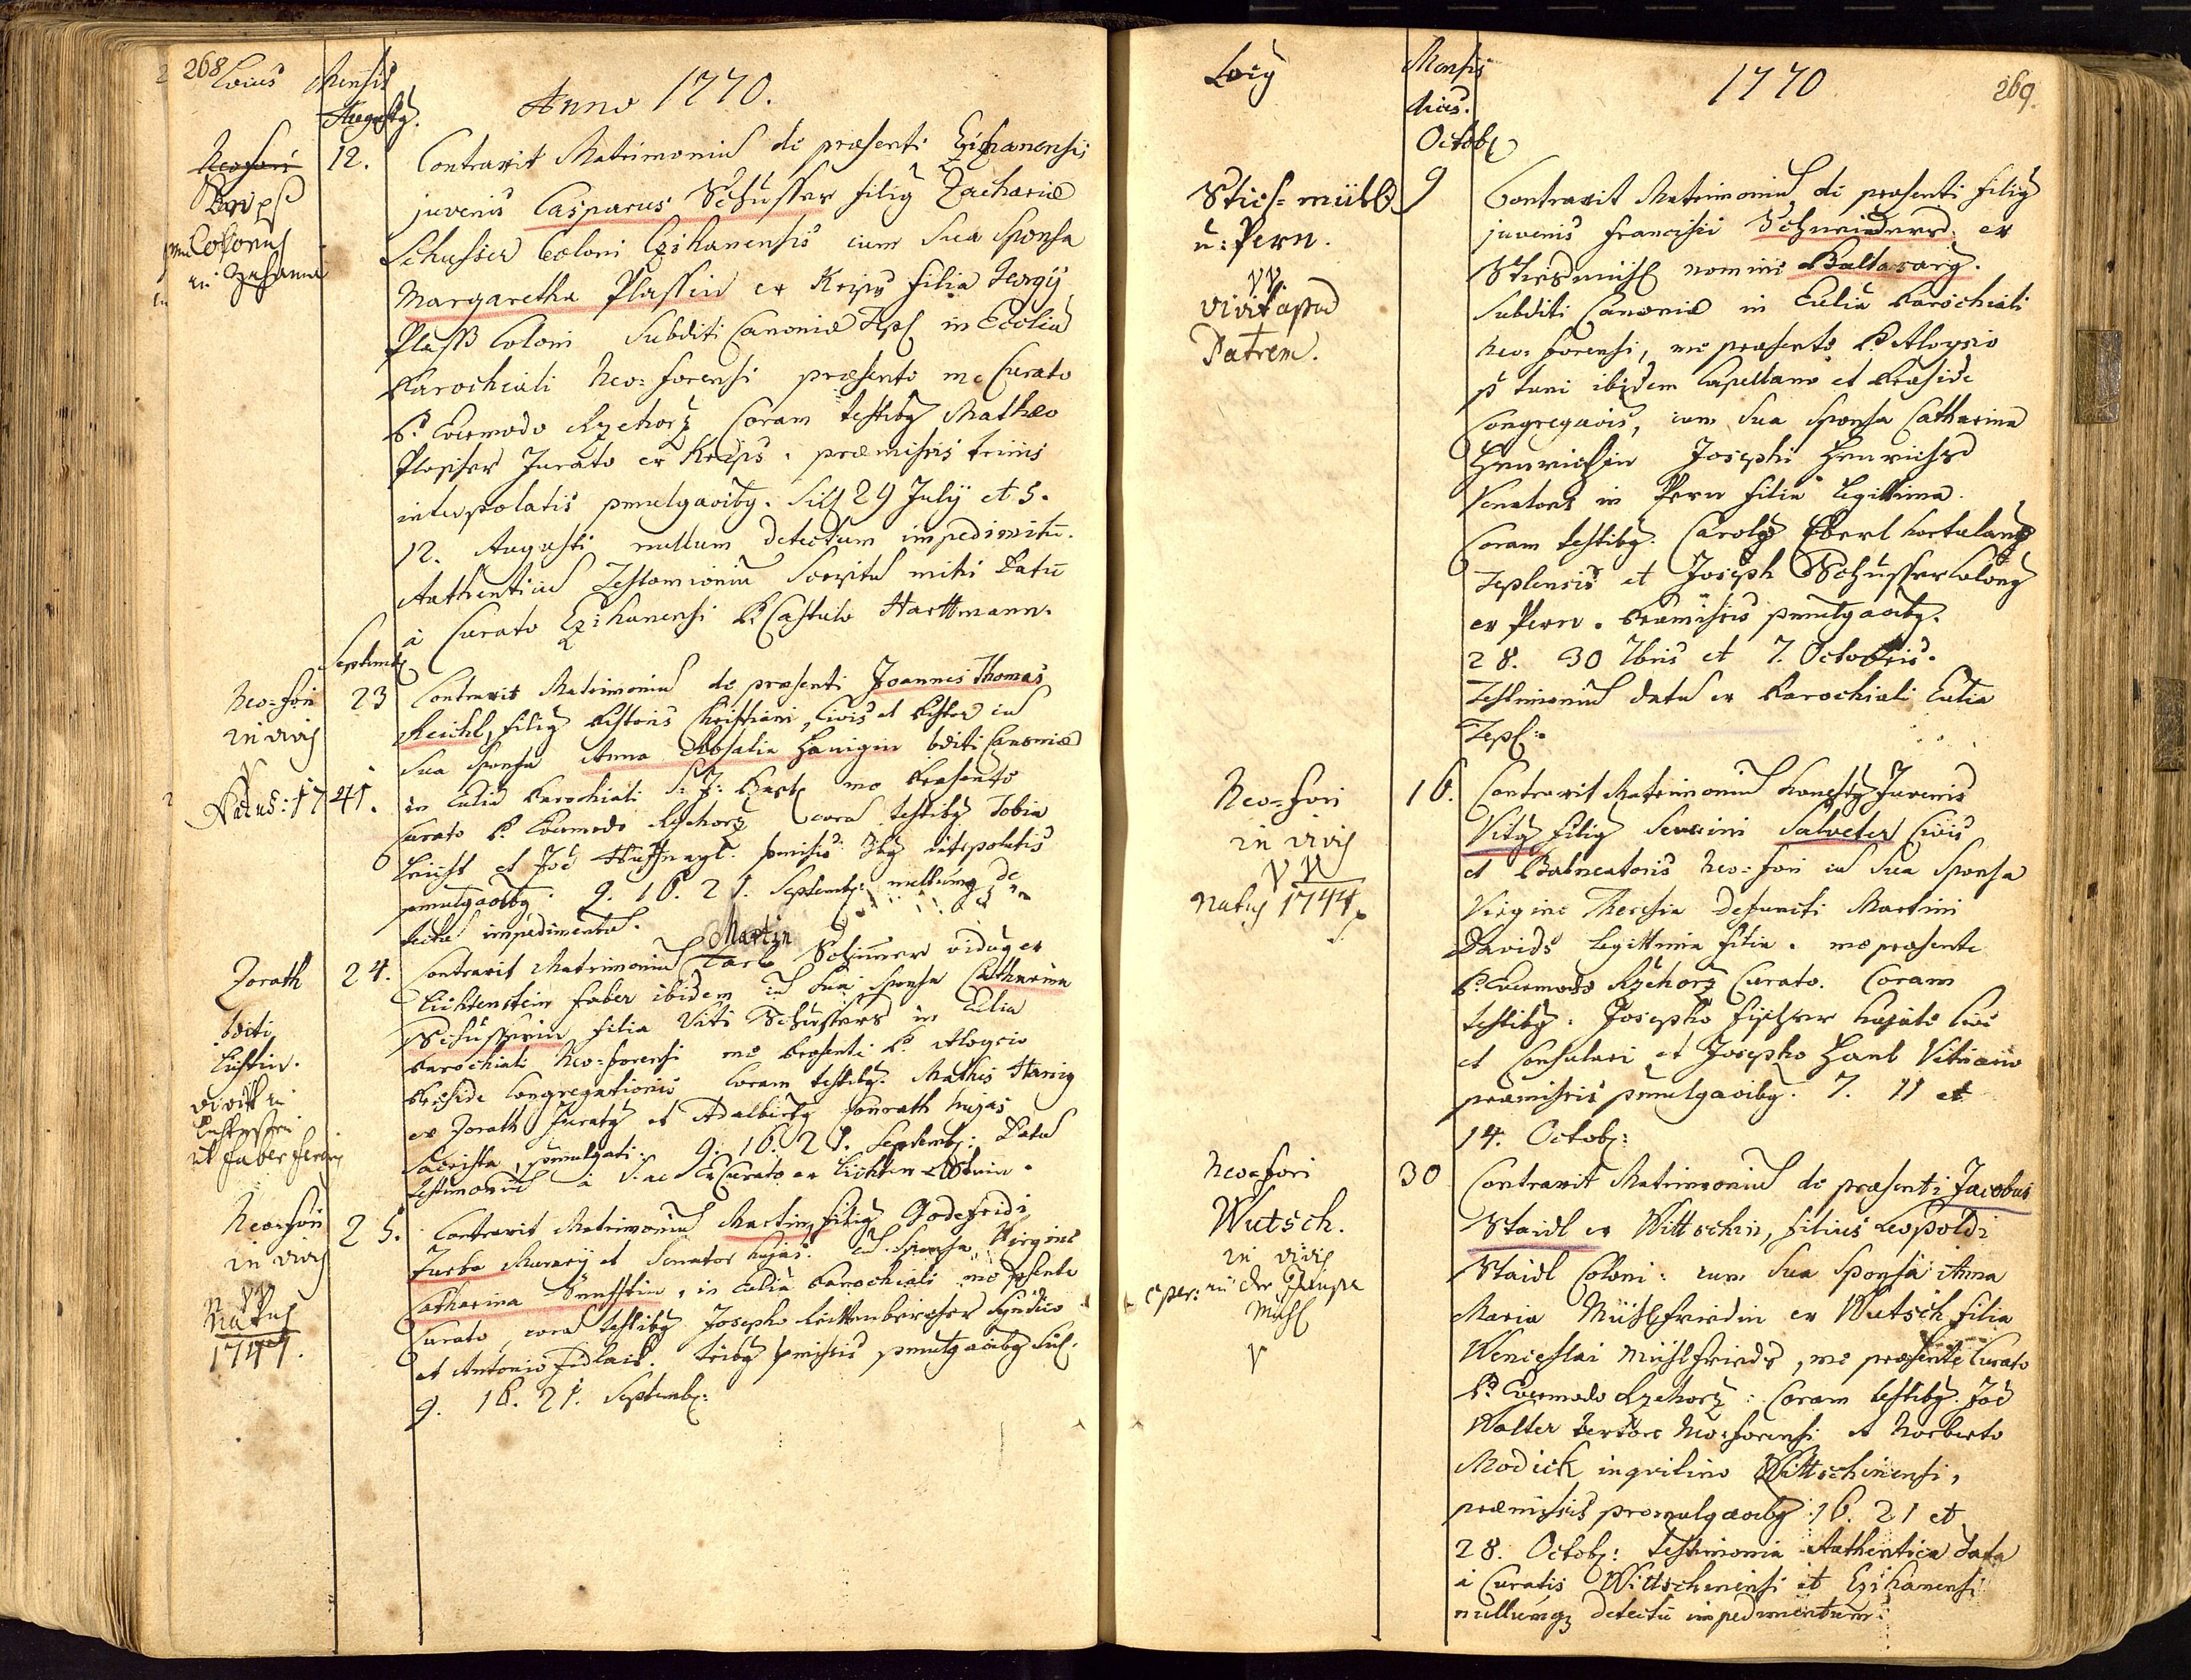 268
Locus Mensis
Augusty.
Anno 1770.
Neofori
12.
Krips
Contraxit Matrimoniu de præsenti Czihanensis
juvenis Casparus Schusser filig Zachariæ
Schusser Coloni Czihanensis cum Sua Sponsa
Margaretha Plassin ex Krips filia Georgij
Plass Coloni Subditi Canoniæ Tepl in Ecclia
Parochiali Neo=forensi præsente me Curato
P. Evermodo Rzehorz Coram testibg Mathæo
Plasser Jurato ex Krips. præmissis trinis
interpolatis pmulgaoibg. Sill 29 July et 5.
12. Augusti nullum detectum impedimentu.
Authenticu Testimoniu Scriptu mihi Datu
à Curato Czihanensi P. Castulo Harttmann.
Septemb
Neo=fori
in vivis
Natus: 1741.
23
Contraxit Matrimoniu de præsenti Joannes Thomas
Reichl, filig Pistoris Christiani, Civis et Pistor cu
Sua Sponsa Anna Rosalia Hanigin bditi Canoniæ
in Ecclia Parochiali S. J. Bapt me Præsente
Curato P. Evermodo Rzehorz cora testibg Tobia
et Joe Huffnagl. pmissis 3bg interpolatis
pmulgaoibg. 9. 16. 21. Septemb: nullumq de
tectu impedimentu.
Zorath
bditi
Lichtin.
24.
Contraxit Matrimoniu Martin Carl Schimmer vidug ex
Lichtenstein faber ibidem cu sua Sponsa Catharina
Schusserin filia Viti Schussers in Ecclia
Parochiali Neo=forensi me Præsente P. Aloysio
Præside Congregationis Coram testibg. Mathis Hanig
ex Zorath Juratg et Adalbertg Conrath hujas
Sacrista, pmulgati. 9. 16. 21. Septemb: Datu
testimoniu à Curato ex Lichtenstein.
Neo=fori
in vivis
Natus
1747.
25.
Contraxit Matrimoniu Martin filig Godefridi
Furba Murarij et Senator hujas. cu Sponsa Virgine
Catharina, in Ecclia Parochiali me psente
Curato, cora testibg Josepho syndico
et Antonio. tribg pmissis pmulgaoibg Sil.
9. 16. 21. Septemb:
Locg
Mensis
dies.
Octob
1770
269.
Stiefmühl
u: Pern.
vivit apud
Patrem.
9
Contraxit Matrimoniu de præsenti filig
juvenis Francisci Schneiders ex
Stiesmühl nomine Baltasarg.
Subditi Canoniæ in Ecclia Parochiali
Neo=forensi, me præsente P. Aloysio
p tuni ibidem Capellano et Præside
Congregaois, cum Sua Sponsa Catharina
Henrichin Josephi Henrichs
Venatoris in Pern filia Legittima.
Coram testibg. Carolg Eberl hortulang
Teplensis et Joseph Schusser Colong
ex Pern. Præmissis pmulgaoibg.
28. 30 7bris et 7. Octobris.
Testimoniu datu ex Parochiali Ecclia
Tepl:
Neo=fori
in vivis
natus 1744
16.
Contraxit Matrimoniu honestg Juvenis
Vitg filig Severini Salveter Civis
et Balneatoris Neo=fori cu Sua Sponsa
Virgine Theresia Defuncti Martini
Davids Legittima filia. me præsente
P. Evermodo Rzehorz Curato. Coram
testibg. Josepho Fischer hujate Cive
et Consulari et Josepho Hanl Vitriario
præmissis pmulgaoibg. 7. 11 et
14. Octob:
Neo=fori
Wutsch.
in vivis
Mühl
30
Contraxit Matrimoniu de præsenti Jacobus
Staidl ex Wittschin, filius Leopoldi
Staidl Coloni: cum Sua Sponsa Anna
Maria Mühlfriedin ex Wutsch filia
Wenceslai Mühlfrieds, me præsente Curato
P. Evermodo Rzehorz: Coram testibg. Joe
Walter textore Neo=forensi et Norberto
Modick inquilino Wittschinensi,
præmissis promulgaoibg 16. 21 et
28. Octob: testimonia Authentica data
à Curatis Wittschinensi et Czihanensi
nullumq detectu impedimentum.